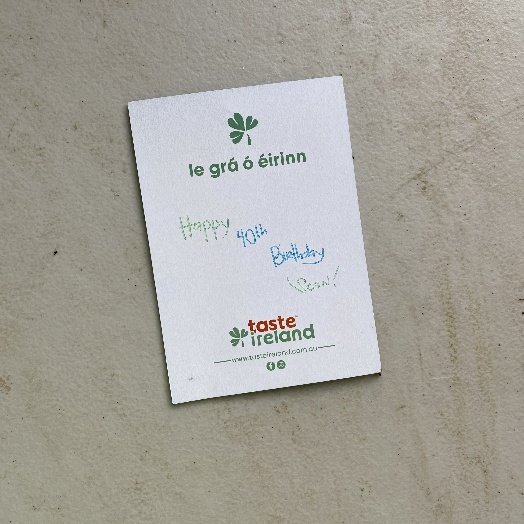 le grá ó éirinn
Happy
40th
Birthday
Sean!
taste
ireland
www.tasteireland.com.au